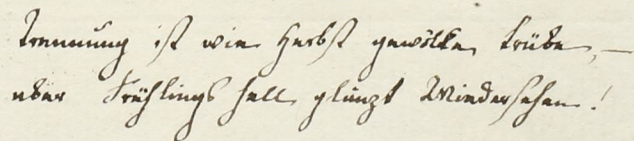 Trennung ist wie Herbst gewölke trübe, —
aber Frühlings hell glänzt Wiedersehen!